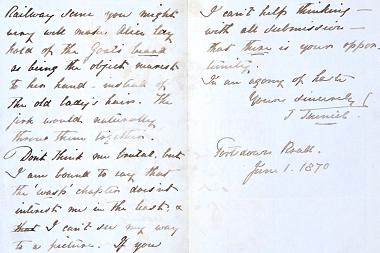 Railway scene you might
very well make Alice lay
hold of the Goat's beard
as being the object nearest
to her hand - instead of
the old lady's hair. The
jerk would naturally
throw them together.
Don't think me brutal, but
I am bound to say that
the 'wasp' chapter doesn't
interest me in the least, &
that I can't see my way
to a picture. If you
I can't help thinking -
with all submission -
that there is your oppor-
tunity.
In an agony of haste
Yours sincerely
J Tenniel.
Portsdown Road.
June 1. 1870